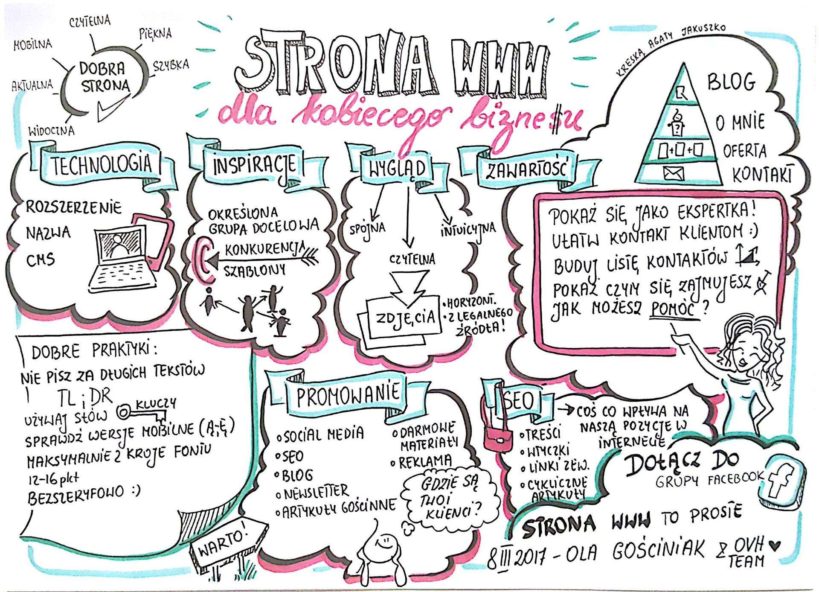 STRONA WWW
dla kobiecego biznesu
KRESKĄ AGATY JAKUSZKO
CZYTELNA
MOBILNA
PIĘKNA
AKTUALNA
SZYBKA
WIDOCZNA
DOBRA
STRONA
TECHNOLOGIA
ROZSZERZENIE
NAZWA
CMS
INSPIRACJE
OKREŚLONA
GRUPA DOCELOWA
KONKURENCJA
SZABLONY
WYGLĄD
SPÓJNA
INTUICYJNA
CZYTELNA
ZDJĘCIA
• HORYZONT.
• Z LEGALNEGO
ŹRÓDŁA!
ZAWARTOŚĆ
BLOG
O MNIE
OFERTA
KONTAKT
POKAŻ SIĘ JAKO EKSPERTKA!
UŁATW KONTAKT KLIENTOM :)
BUDUJ LISTĘ KONTAKTÓW
POKAŻ CZYM SIĘ ZAJMUJESZ
JAK MOŻESZ POMÓC?
DOBRE PRAKTYKI:
NIE PISZ ZA DŁUGICH TEKSTÓW
TL;DR
UŻYWAJ SŁÓW KLUCZY
SPRAWDŹ WERSJE MOBILNE (Ą,Ę)
MAKSYMALNIE 2 KROJE FONTU
12-16 pkt
BEZSZERYFOWO :)
WARTO!
PROMOWANIE
• SOCIAL MEDIA
• SEO
• BLOG
• NEWSLETTER
• ARTYKUŁY GOŚCINNE
• DARMOWE
MATERIAŁY
• REKLAMA
GDZIE SĄ
TWOI
KLIENCI?
SEO
COŚ CO WPŁYWA NA
NASZĄ POZYCJĘ W
INTERNECIE
• TREŚCI
• WTYCZKI
• LINKI ZEW.
• CYKLICZNE
ARTYKUŁY
DOŁĄCZ DO
GRUPY FACEBOOK
f
STRONA WWW TO PROSTE
8 III 2017 - OLA GOŚCINIAK Z OVH
TEAM